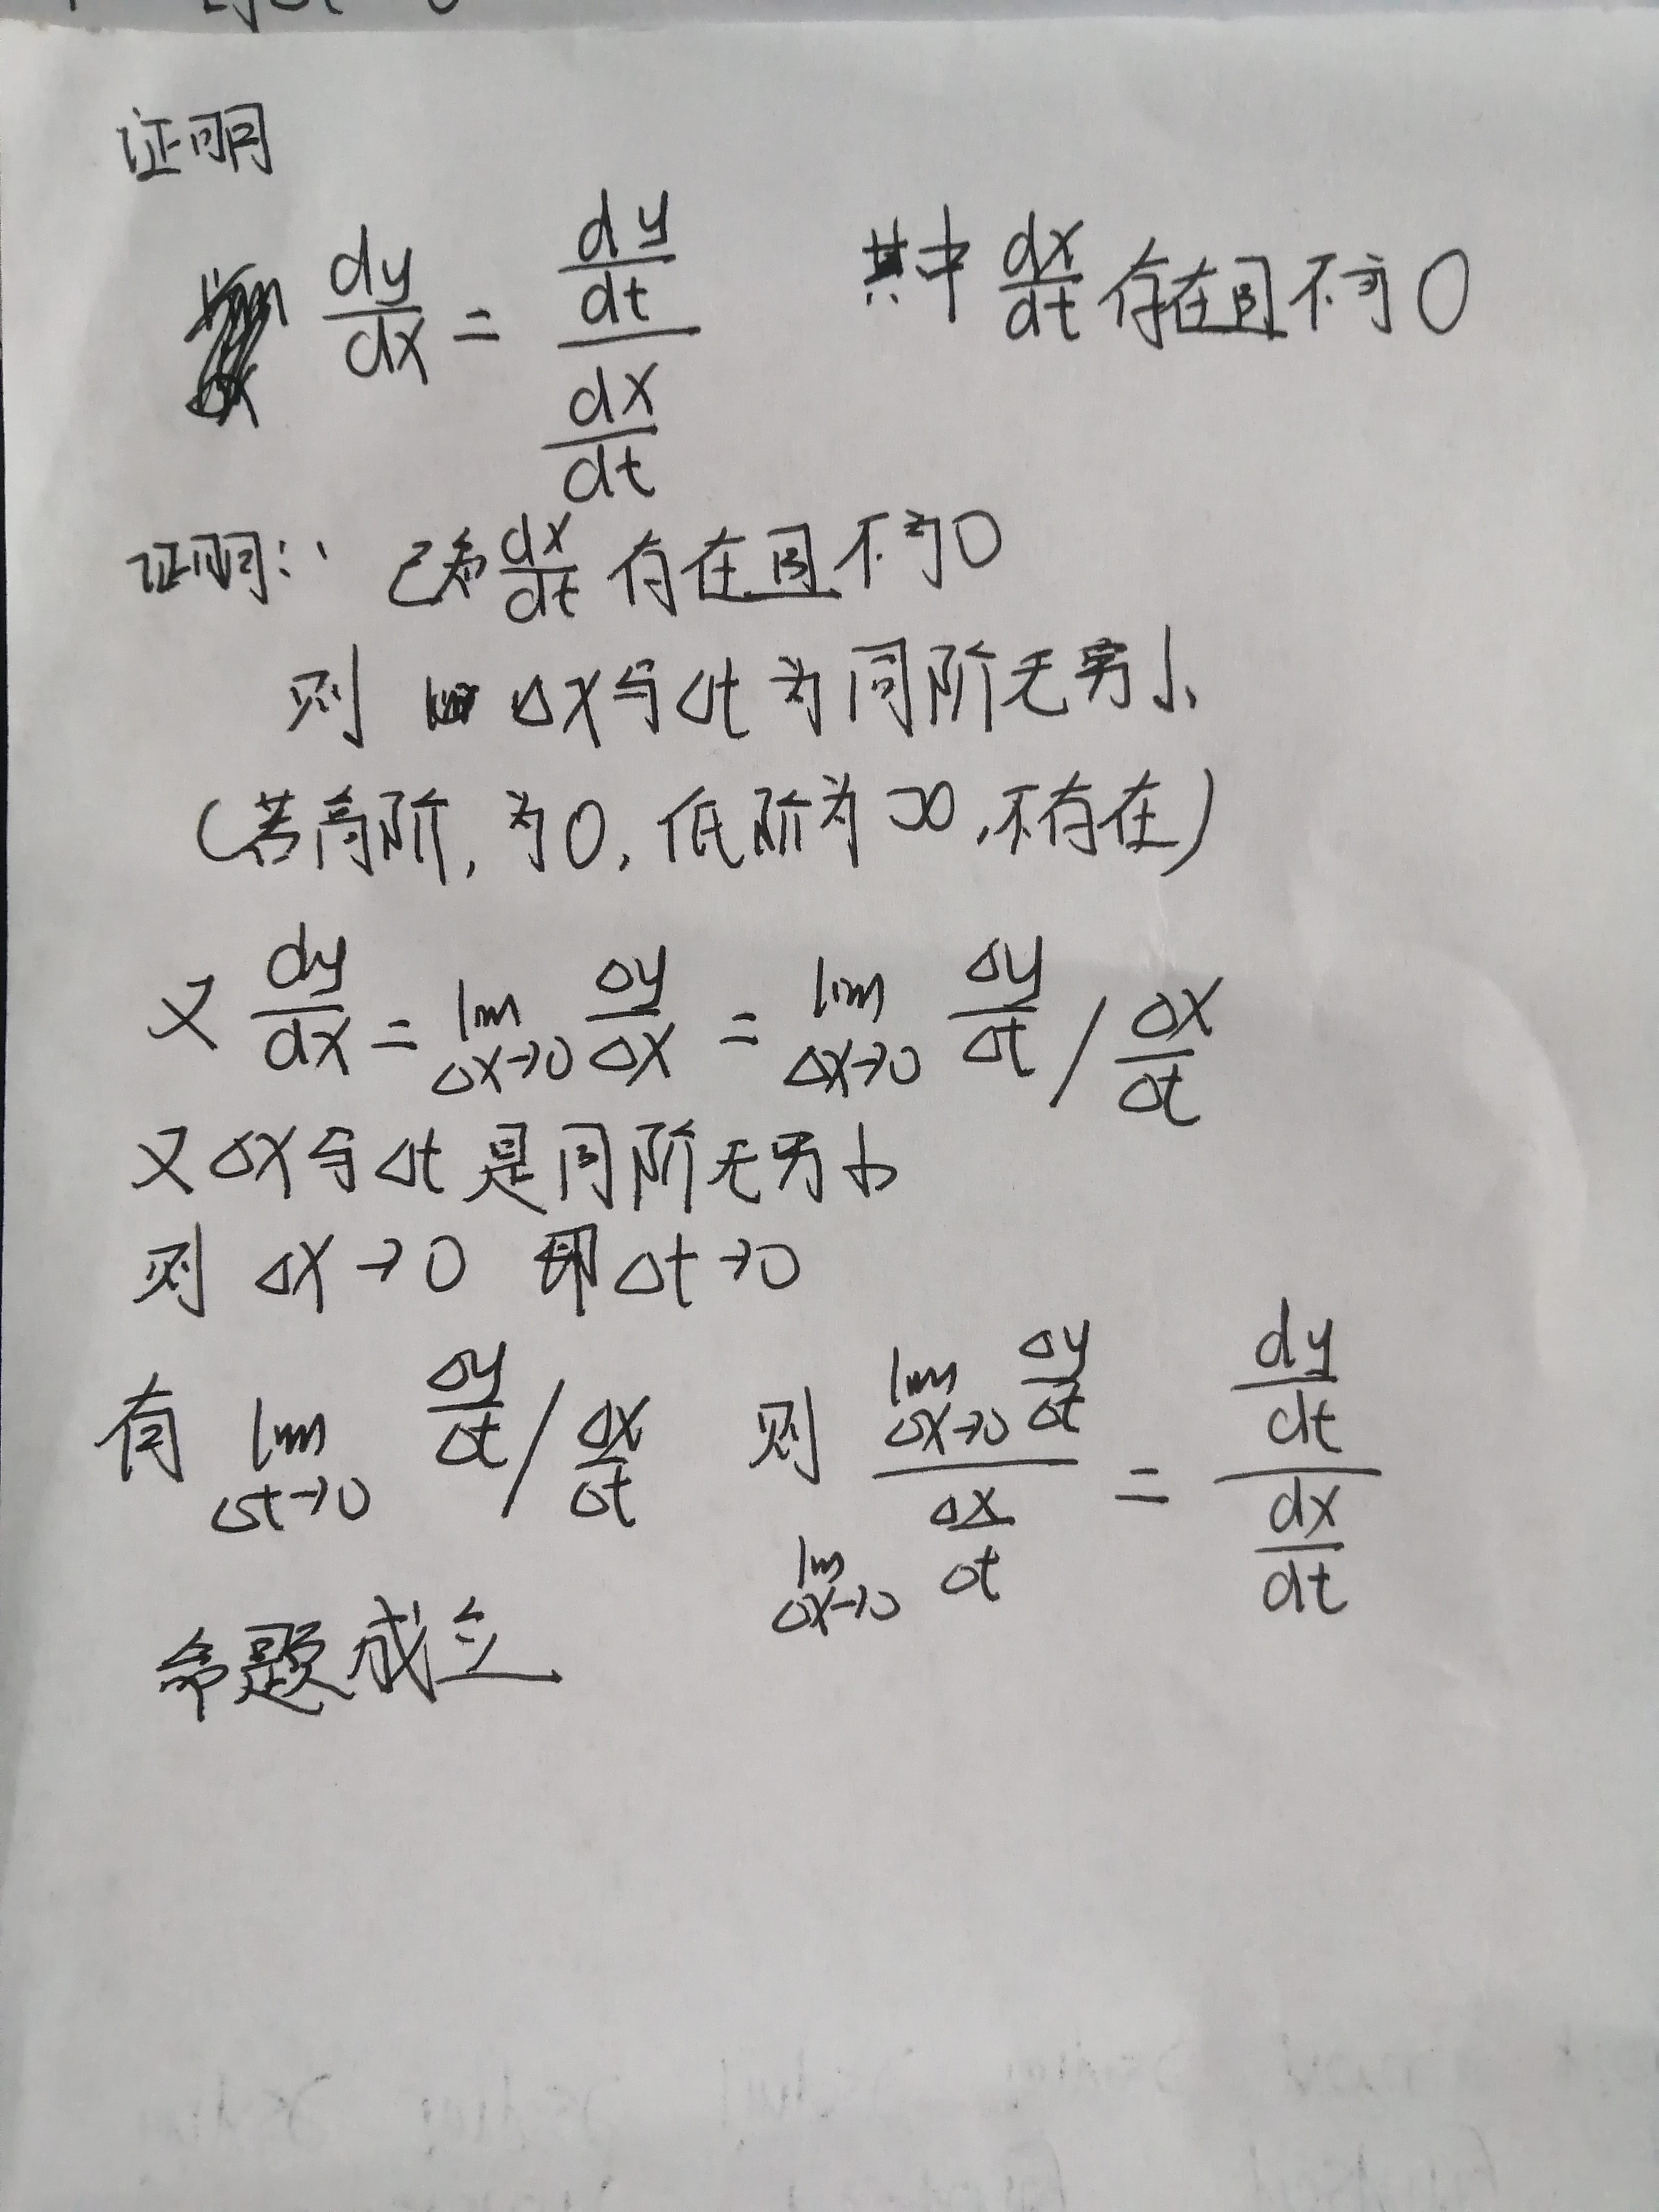 证明
dy/dx = (dy/dt)/(dx/dt) 其中 dx/dt 存在且不为0
证明: 已知 dx/dt 存在且不为0
则 Δx与Δt为同阶无穷小
(若高阶,为0,低阶为∞,不存在)
又 dy/dx = lim Δx→0 Δy/Δx = lim Δx→0 Δy/Δt / Δx/Δt
又Δx与Δt是同阶无穷小
则 Δx→0 即Δt→0
有 lim Δt→0 Δy/Δt / Δx/Δt 则 (lim Δx→0 Δy/Δt)/(lim Δx→0 Δx/Δt) = (dy/dt)/(dx/dt)
命题成立